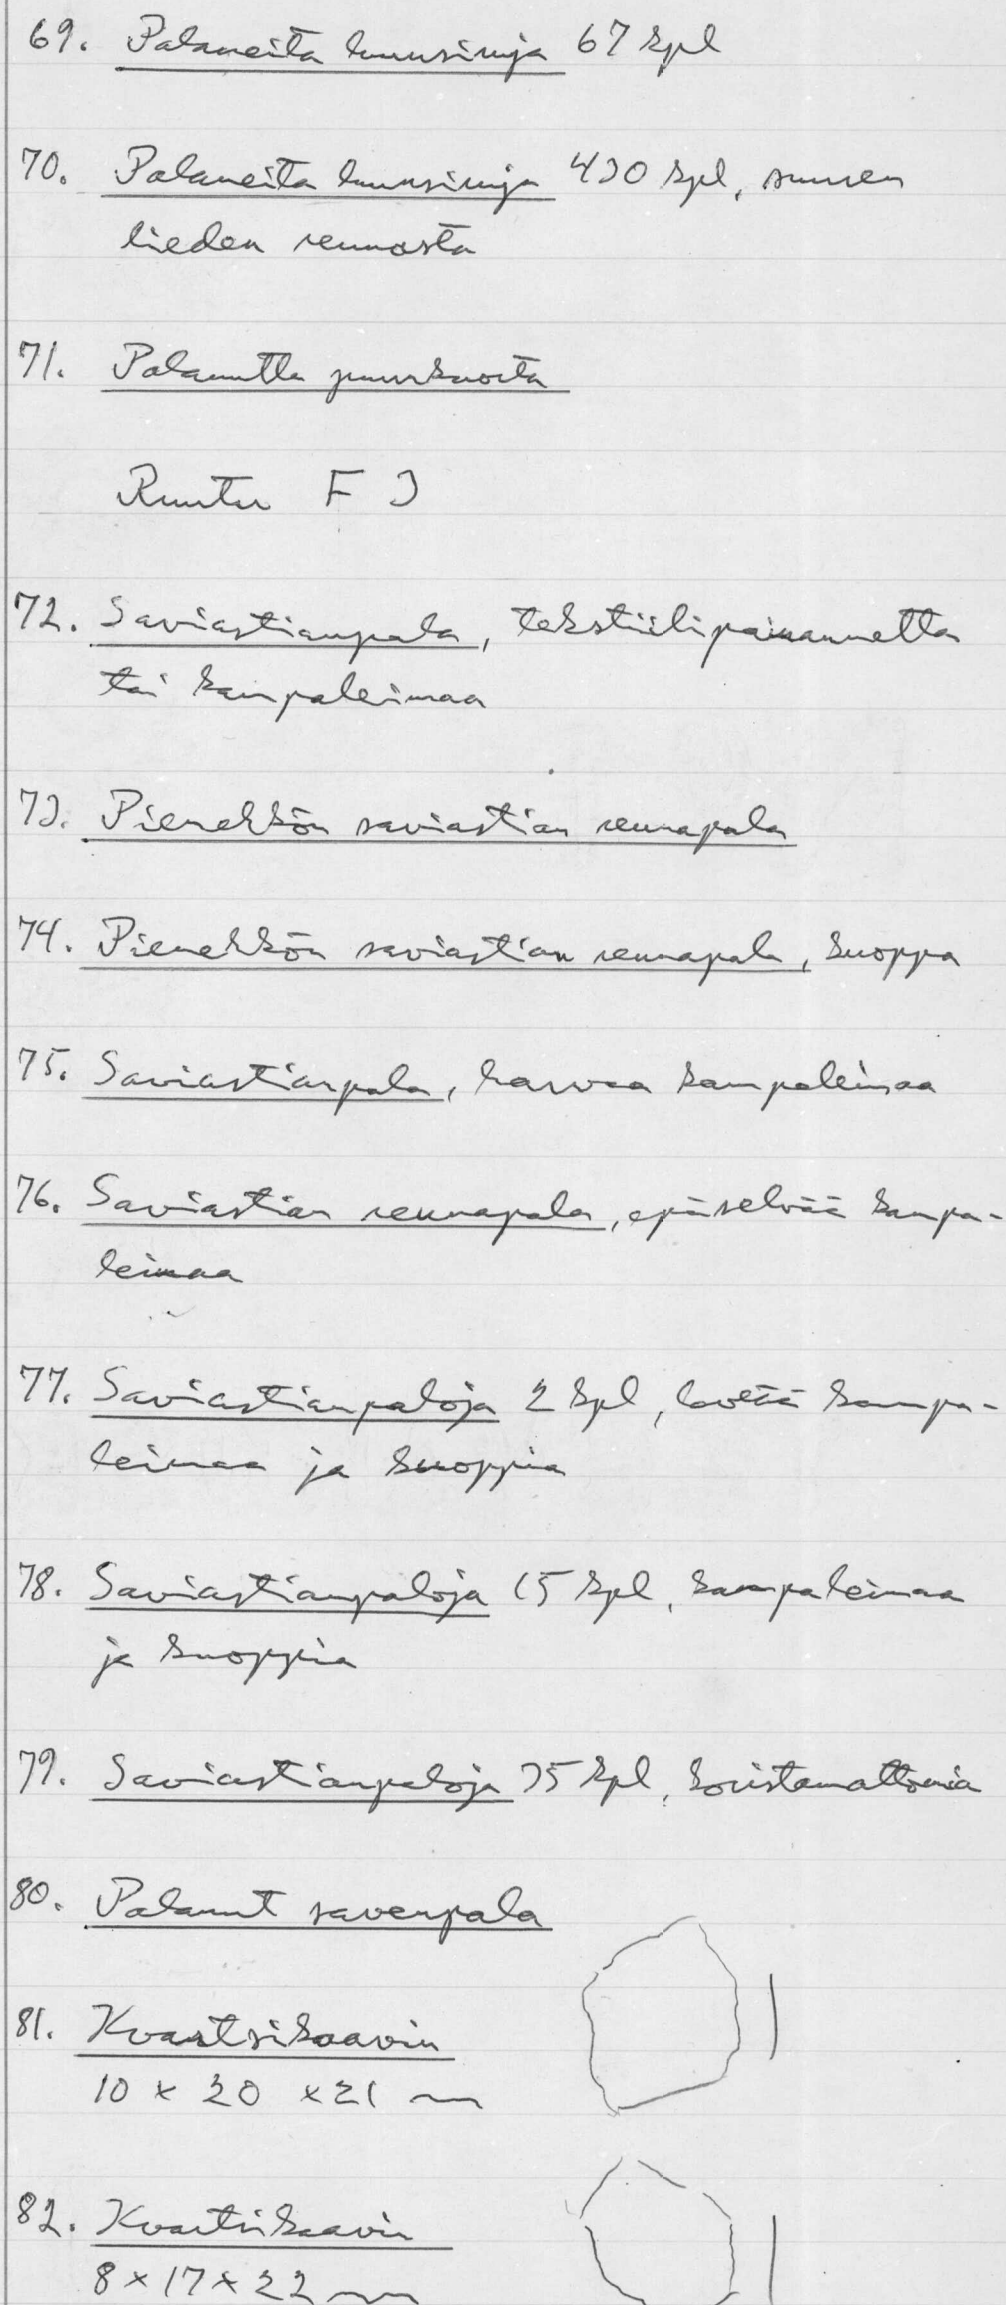 69. Palaneita luunsiruja 67 kpl
70. Palaneita luunsiruja 430 kpl, suuren
lieden reunasta
71. Palanutta puunkuorta
Ruutu F 3
72. Saviastianpala, tekstiilipainannetta
tai kampaleimaa
73. Pienehkön saviastian reunapala
74. Pienehkön saviastian reunapala, kuoppa
75. Saviastianpala, harvaa kampaleimaa
76. Saviastian reunapala, epäselvää kampa-
leimaa
77. Saviastianpaloja 2 kpl, loveää kampa-
leimaa ja kuoppia
78. Saviastianpaloja 15 kpl, kampaleimaa
ja kuoppia
79. Saviastianpaloja 35 kpl, koristamattomia
80. Palanut savenpala
81. Kvartsikaavin
10 x 20 x 21 mm
82. Kvartsikaavin
8 x 17 x 22 mm